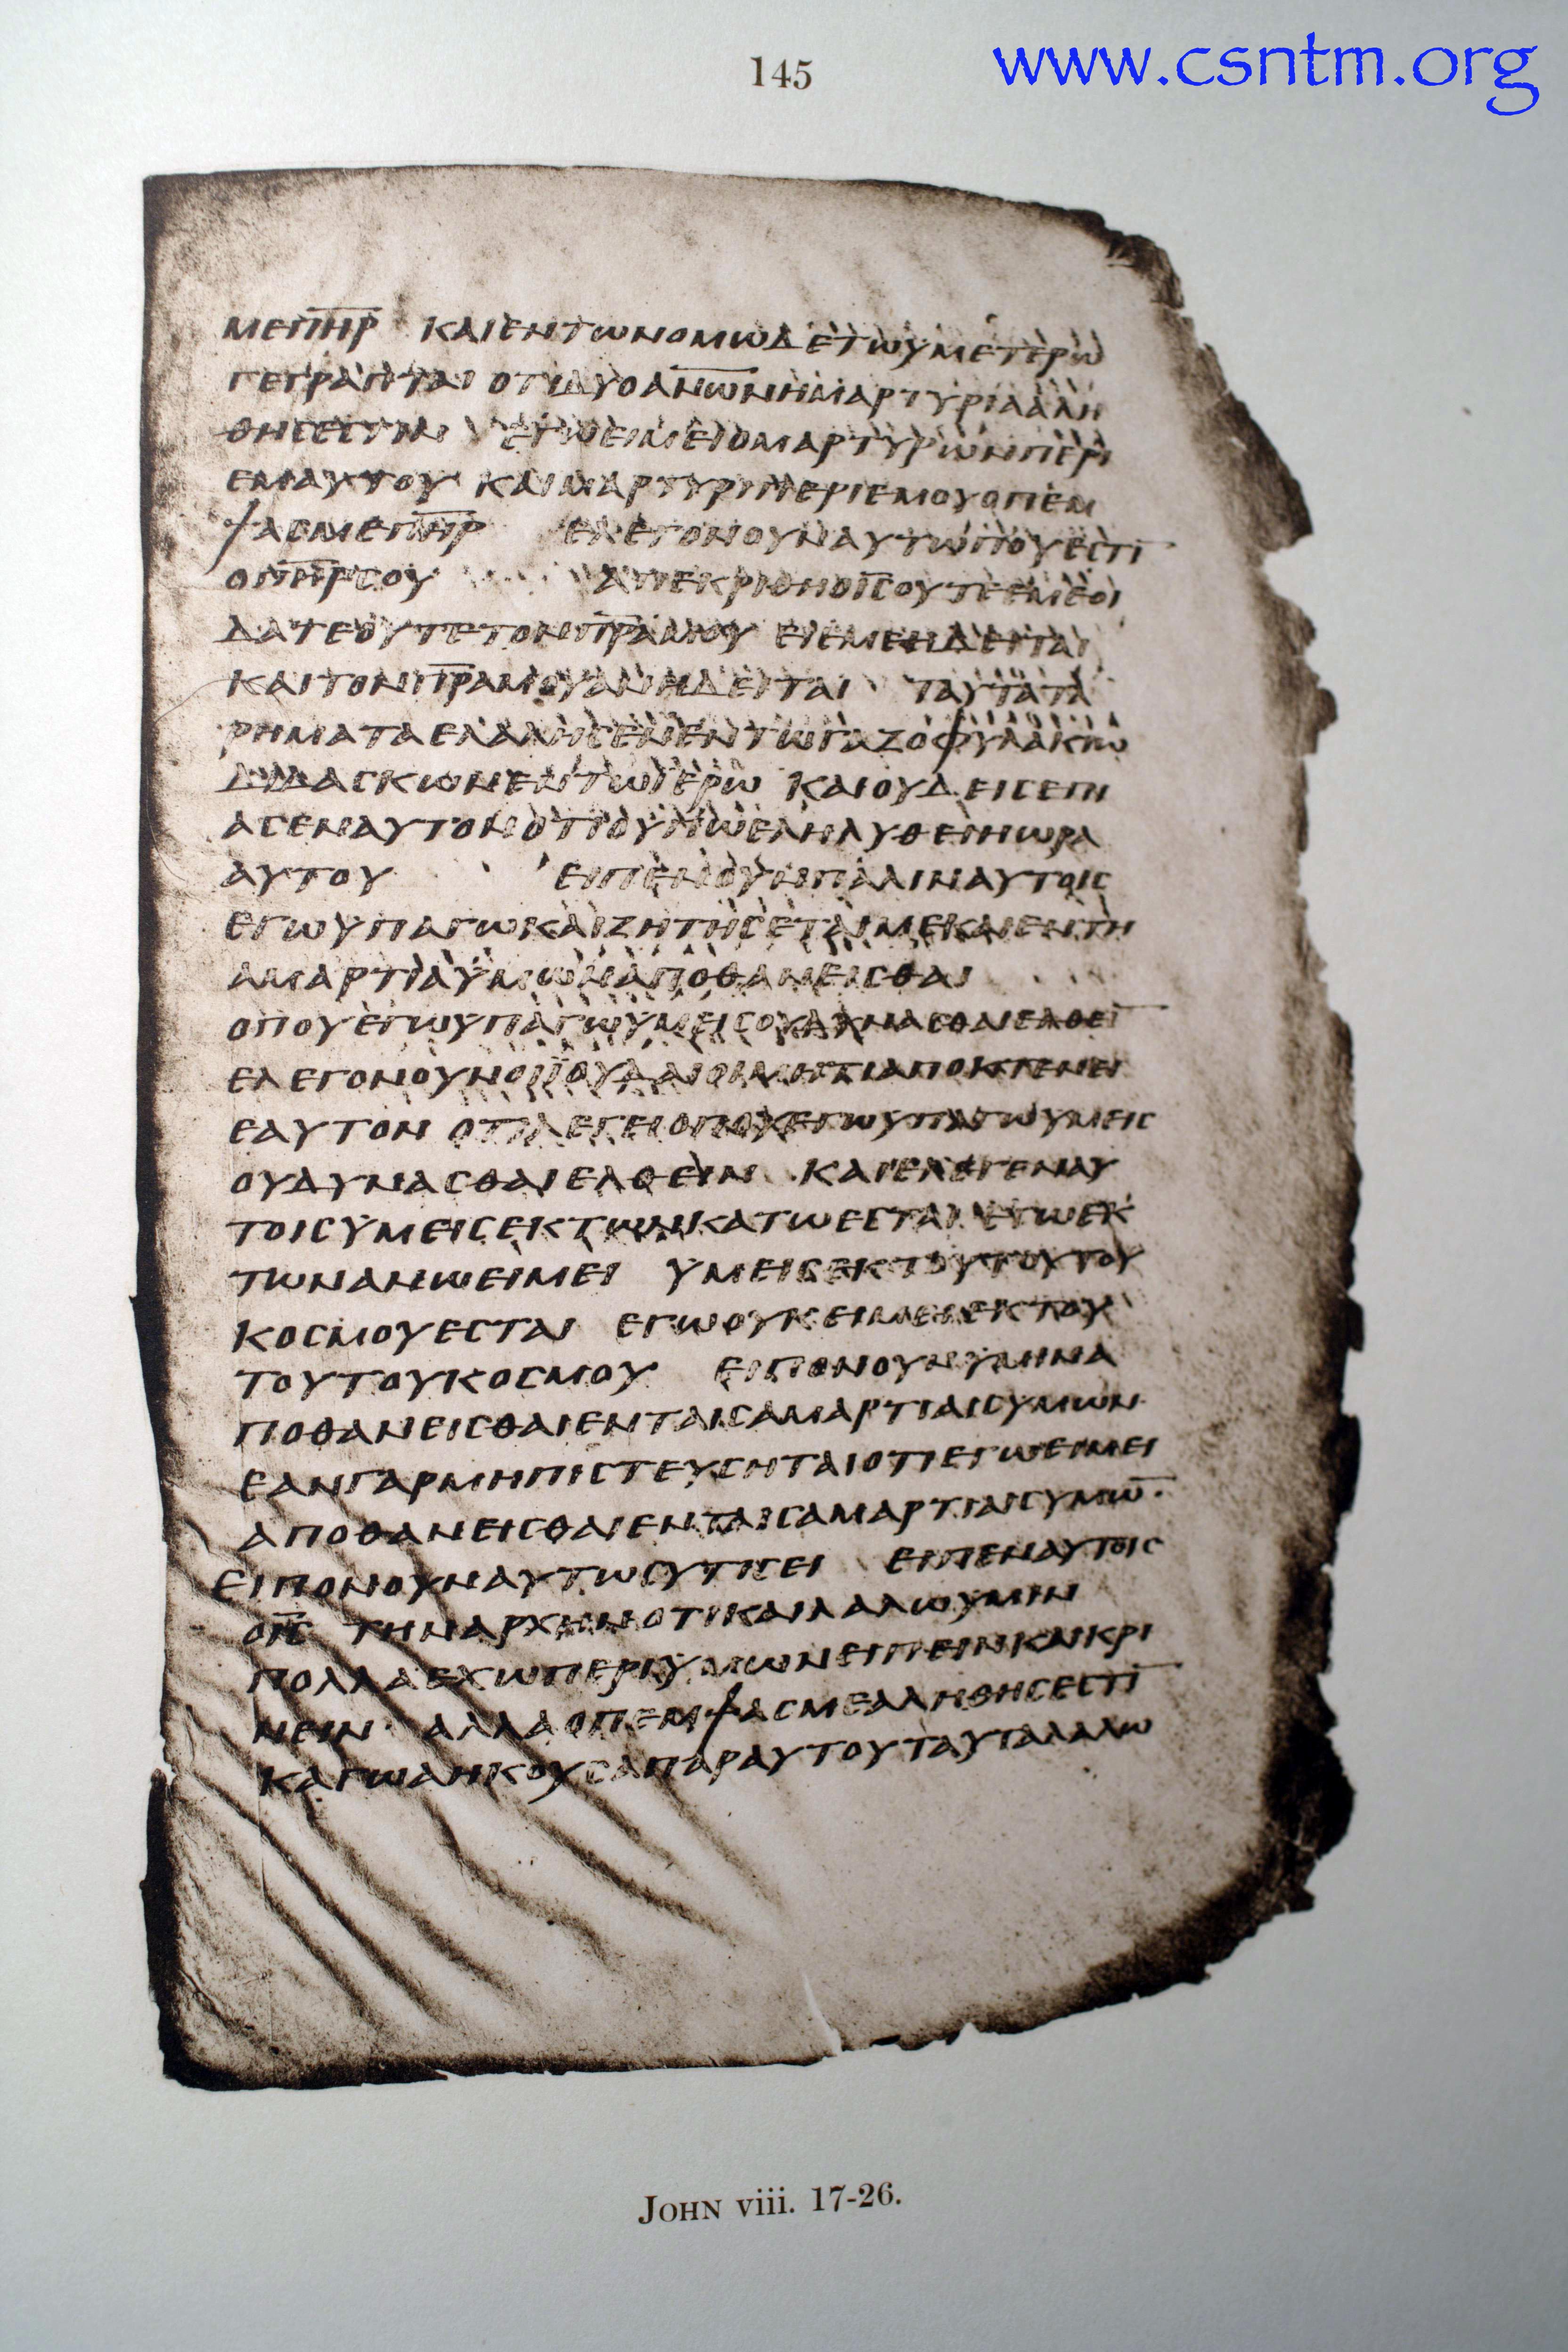 145
www.csntm.org
ΜΕΠΗΡ ΚΑΙΕΝΤΩΝΟΜΩΔΕΤΩΥΜΕΤΕΡΩ
ΓΕΓΡΑΠΤΑΙ ΟΤΙΔΥΟΑΝΩΝΗΜΑΡΤΥΡΙΑΑΛΗ
ΘΗСΕСΤΙΝ ΕΓΩΕΙΜΕΙΟΜΑΡΤΥΡΩΝΠΕΡΙ
ΕΜΑΥΤΟΥ ΚΑΙΜΑΡΤΥΡΙΠΕΡΙΕΜΟΥΟΠΕΜ
ΨΑСΜΕΠΗΡ ΕΛΕΓΟΝΟΥΝΑΥΤΩΠΟΥΕСΤΙ
ΟΠΗΡСΟΥ ΑΠΕΚΡΙΘΗΟΙСΟΥΤΕΕΜΕΟΙ
ΔΑΤΕΟΥΤΕΤΟΝΠΡΑΜΟΥ ΕΙΕΜΕΗΔΕΙΤΑΙ
ΚΑΙΤΟΝΠΡΑΜΟΥΑΝΗΔΕΙΤΑΙ ΤΑΥΤΑΤΑ
ΡΗΜΑΤΑΕΛΑΛΗСΕΝΕΝΤΩΓΑΖΟΦΥΛΑΚΙΩ
ΔΙΔΑСΚΩΝΕΝΤΩΙΕΡΩ ΚΑΙΟΥΔΕΙСΕΠΙ
ΑСΕΝΑΥΤΟΝΟΤΙΟΥΠΩΕΛΗΛΥΘΕΙΗΩΡΑ
ΑΥΤΟΥ ΕΙΠΕΝΟΥΝΠΑΛΙΝΑΥΤΟΙС
ΕΓΩΥΠΑΓΩΚΑΙΖΗΤΗСΕΤΑΙΜΕΚΑΙΕΝΤΗ
ΑΜΑΡΤΙΑΥΜΩΝΑΠΟΘΑΝΕΙСΘΑΙ
ΟΠΟΥΕΓΩΥΠΑΓΩΥΜΕΙСΟΥΔΥΝΑСΘΑΙΕΛΘΕΙ
ΕΛΕΓΟΝΟΥΝΟΙΙΟΥΔΑΙΟΙΜΗΤΙΑΠΟΚΤΕΝΕΙ
ΕΑΥΤΟΝ ΟΤΙΛΕΓΕΙΟΠΟΥΕΓΩΥΠΑΓΩΥΜΕΙС
ΟΥΔΥΝΑСΘΑΙΕΛΘΕΙΝ ΚΑΙΕΛΕΓΕΝΑΥ
ΤΟΙСΥΜΕΙСΕΚΤΩΝΚΑΤΩΕСΤΑΙ ΕΓΩΕΚ
ΤΩΝΑΝΩΕΙΜΕΙ ΥΜΕΙСΕΚΤΟΥΤΟΥΤΟΥ
ΚΟСΜΟΥΕСΤΑΙ ΕΓΩΟΥΚΕΙΜΕΙΕΚΤΟΥ
ΤΟΥΤΟΥΚΟСΜΟΥ ΕΙΠΟΝΟΥΝΥΜΙΝΑ
ΠΟΘΑΝΕΙСΘΑΙΕΝΤΑΙСΑΜΑΡΤΙΑΙСΥΜΩΝ
ΕΑΝΓΑΡΜΗΠΙСΤΕΥСΗΤΑΙΟΤΙΕΓΩΕΙΜΕΙ
ΑΠΟΘΑΝΕΙСΘΑΙΕΝΤΑΙСΑΜΑΡΤΙΑΙСΥΜΩ
ΕΙΠΟΝΟΥΝΑΥΤΩСΥΤΙСΕΙ ΕΙΠΕΝΑΥΤΟΙС
ΟΙС ΤΗΝΑΡΧΗΝΟΤΙΚΑΙΛΑΛΩΥΜΙΝ
ΠΟΛΛΑΕΧΩΠΕΡΙΥΜΩΝΕΙΠΕΙΝΚΑΙΚΡΙ
ΝΕΙΝ ΑΛΛΑΟΠΕΜΨΑСΜΕΑΛΗΘΗСΕСΤΙ
ΚΑΓΩΑΗΚΟΥСΑΠΑΡΑΥΤΟΥΤΑΥΤΑΛΑΛΩ
JOHN viii. 17-26.